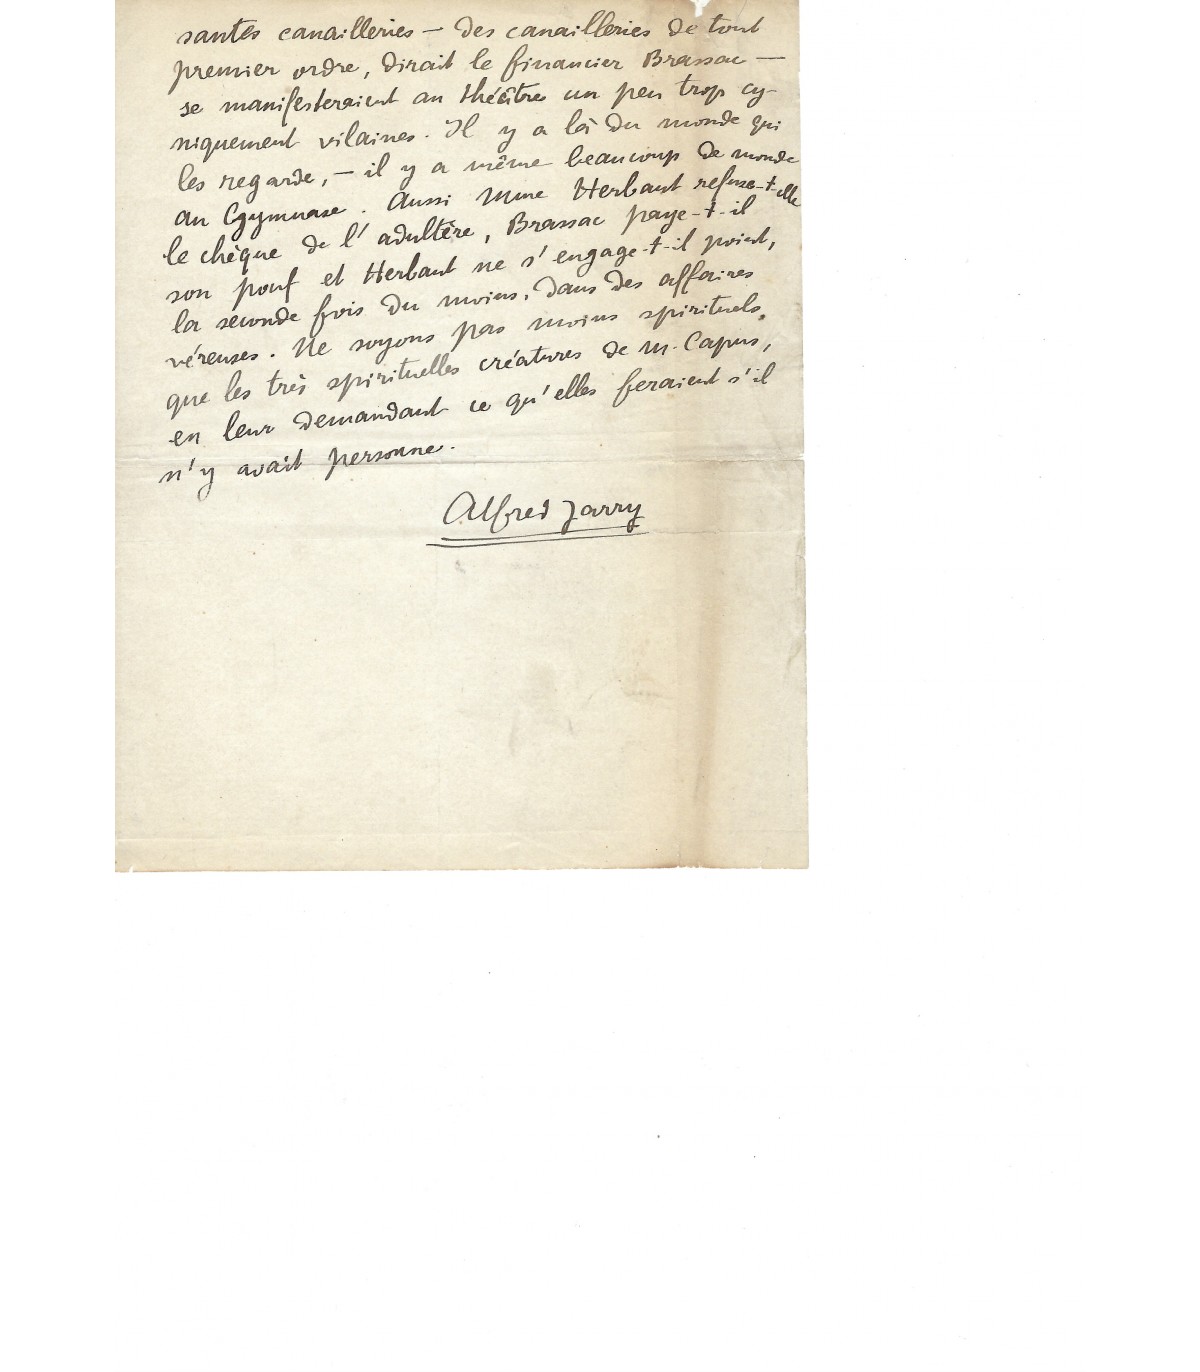 santes canailleries — des canailleries de tout
premier ordre, dirait le financier Brassac —
se manifesteraient au théâtre un peu trop cy-
niquement vilaines. Il y a là du monde qui
les regarde, — il y a même beaucoup de monde
au Gymnase. Aussi Mme Herbaut refuse-t-elle
le chèque de l'adultère, Brassac paye-t-il
son pouf et Herbaut ne s'engage-t-il point,
la seconde fois du moins, dans des affaires
véreuses. Ne soyons pas moins spirituels,
que les très spirituelles créatures de M. Capus,
en leur demandant ce qu'elles feraient s'il
n'y avait personne.
Alfred Jarry